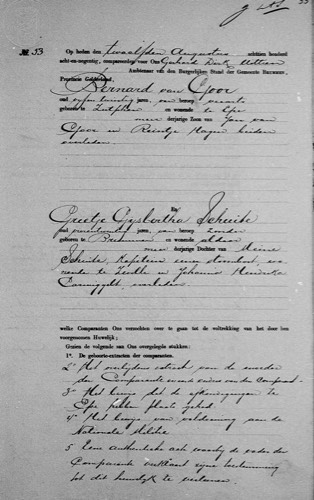 No. 53
Op heden den twaalfden Augustus achttien honderd
acht-en-negentig, compareerden voor Ons Gerhard Derk
Ambtenaar van den Burgerlijken Stand der Gemeente BRUMMEN,
Provincie Gelderland,
Bernard van Goor
oud jaren, van beroep
geboren te Zutphen en wonende te Epe
meer derjarige Zoon van van
Goor en Hagen beiden
overleden.
En
Greetje Gijsbertha Scheide
oud jaren, van beroep zonder
geboren te Brummen en wonende aldaar
meer derjarige Dochter van
Scheide, Kapitein eener stoomboot,
te Zwolle en Johanna Hendrika
overleden
welke Comparanten Ons verzochten over te gaan tot de voltrekking van het door hen
voorgenomen Huwelijk;
Gezien de volgende aan Ons overgelegde stukken:
1°. De geboorte-extracten der comparanten.
2° Het overlijdens extract van de moeder
der Comparante van den Comparant
3° Het bewijs dat de afkondigingen te
Epe hebben plaats gehad.
4° Het bewijs van voldoening aan de
Nationale Militie
5 Eene authentieke acte waarbij de vader der
Comparante verklaart zijne toestemming
tot dit huwelijk te verleenen.